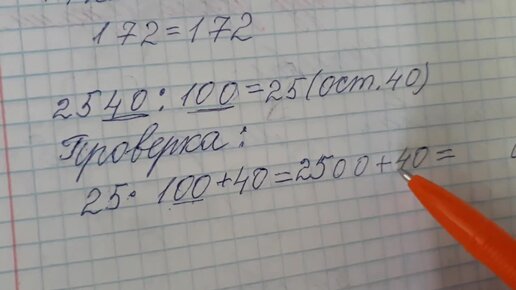 172=172
2540:100=25(ост.40)
Проверка:
25·100+40=2500+40=